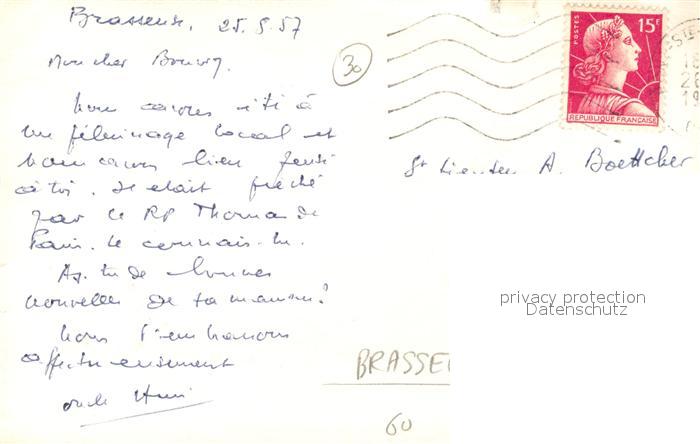 Brasseuse, 25.5.57
Mon cher
30
Nous avons été à
un pèlerinage local et
nous avons bien pensé
à toi. Il était prêché
par le RP Thomas de
Paris. Le connais-tu.
As-tu de bonnes
nouvelles de ta maman?
Nous t'embrassons
affectueusement
oncle Henri
POSTES
15F
REPUBLIQUE FRANÇAISE
A. Boettcher
privacy protection
Datenschutz
BRASSE
60